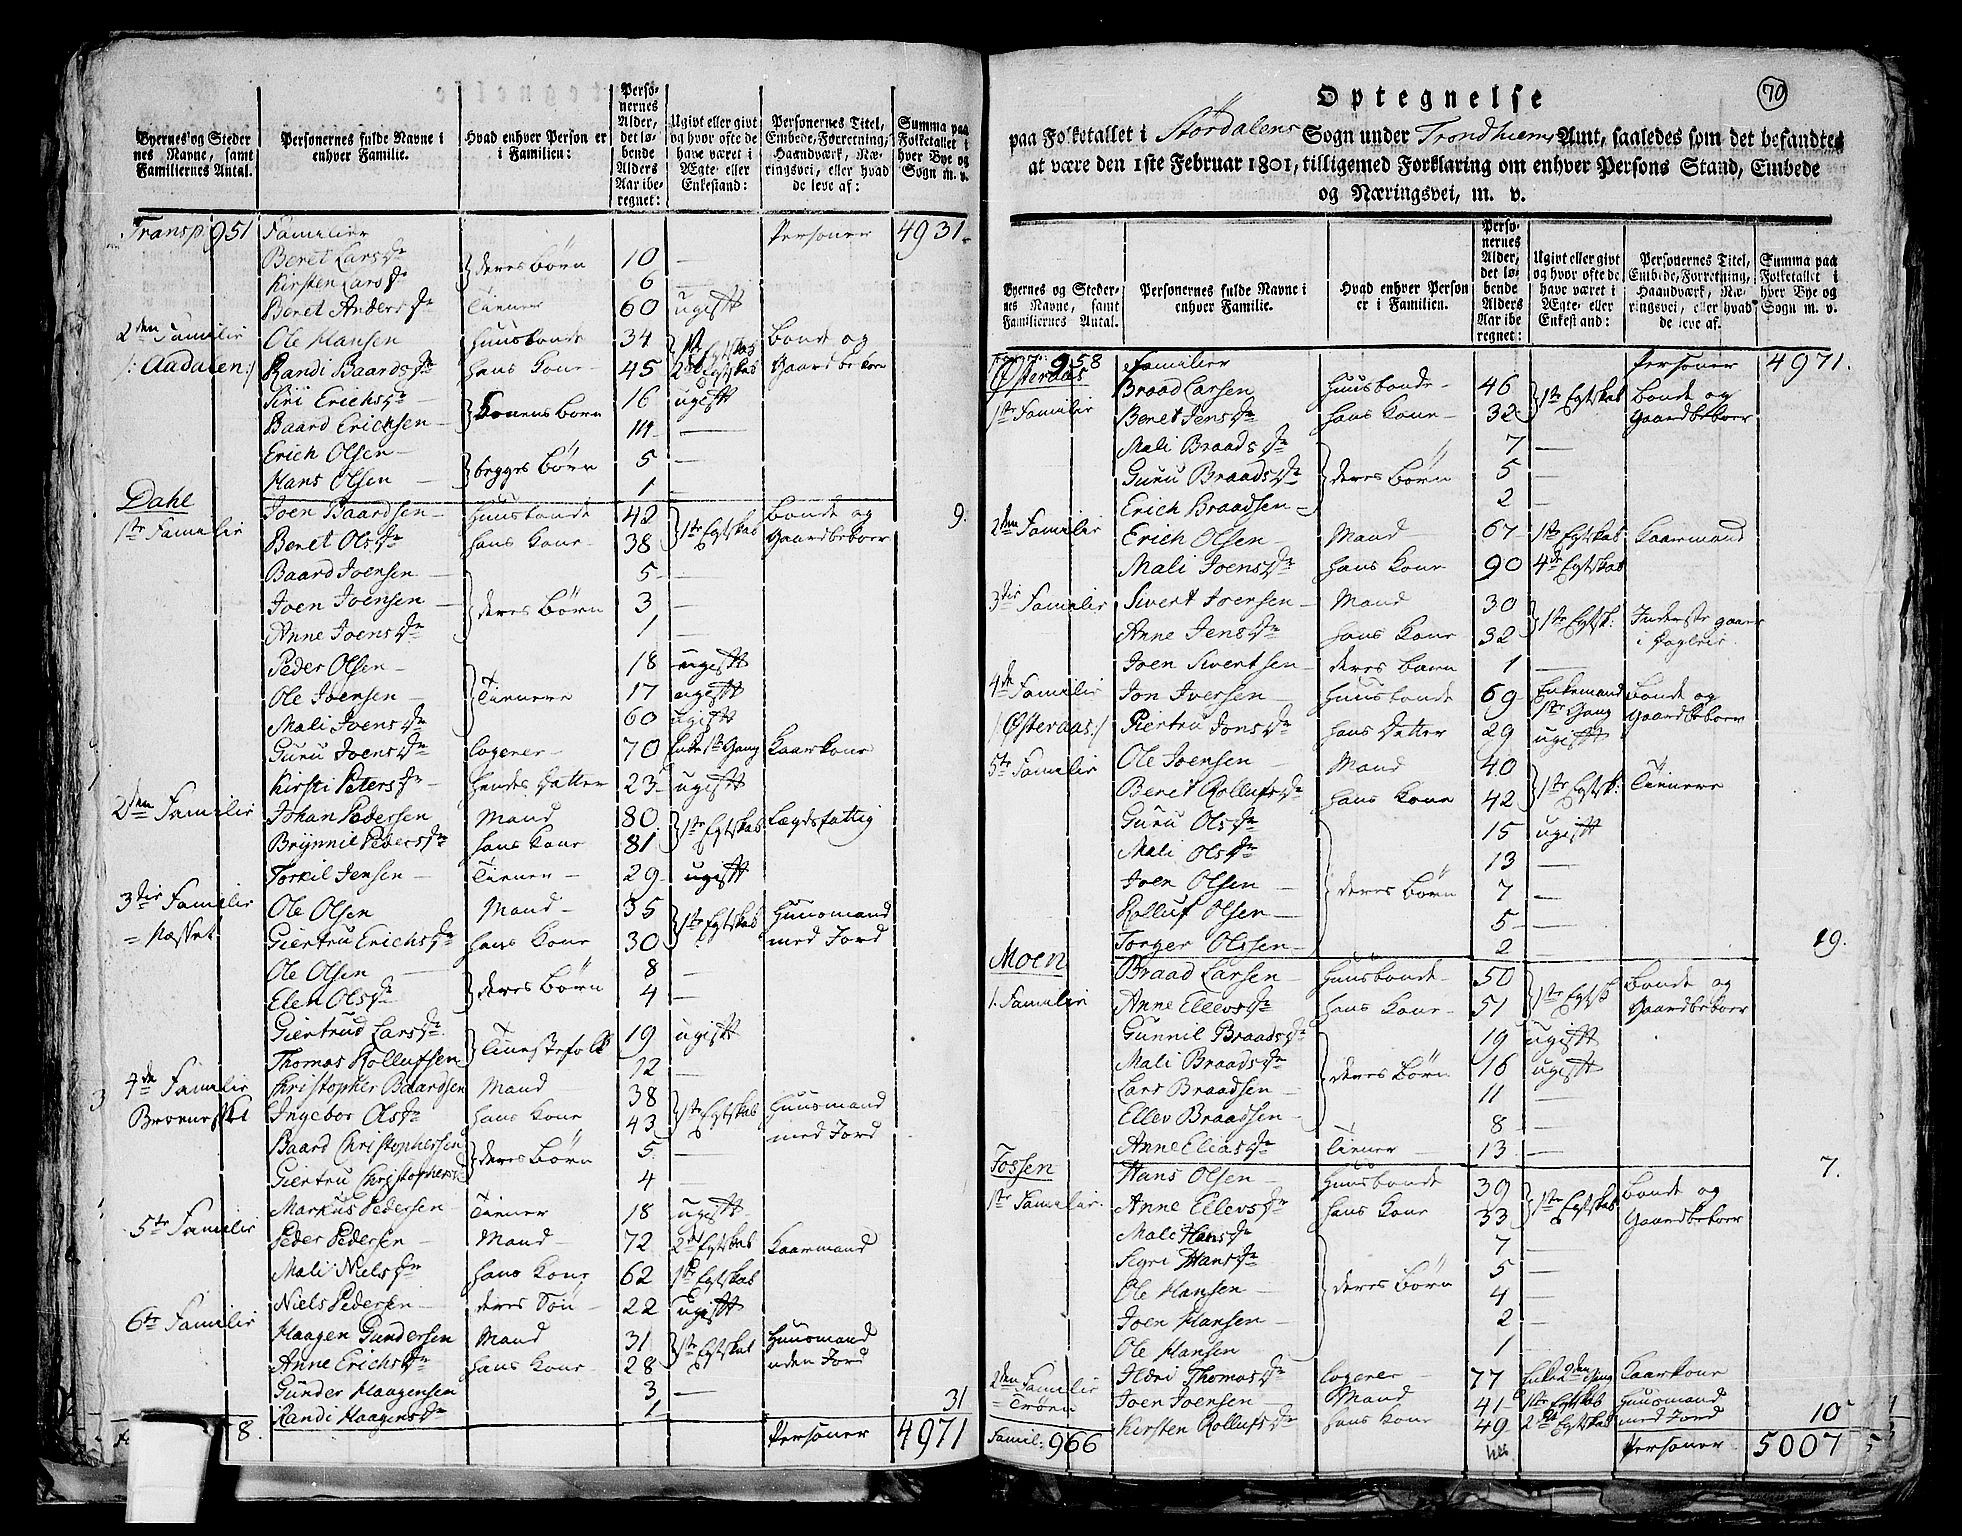 Byernes og Steder
nes Navne, samt
Familiernes Antal.
Personernes fulde Navne i
enhver Familie.
Hvad enhver Person er
i Familien:
Perso-
nernes
Alder,
det lø-
bende
Alders
Aar ibe-
regnet:
Ugivt eller givt
og hvor ofte de
have været i
Ægte- eller
Enkestand:
Personernes Titel,
Embede, Forretning,
Haandværk, Næ-
ringsvei, eller hvad
de leve af:
Summa paa
Folketallet i
hver Bye og
Sogn m. v.
Transp: 951 Familier Personer 4931.
Beret Larsdr } deres Børn 10 —
Kirsten Larsdr 6 —
Beret Andersdr Tiener 60 ugift
2den Familie Ole Hansen Huusbonde 34 1te Egtskab Bonde og
/: Aadalen :/ Randi Baardsdr hans Kone 45 2det Egtskab Gaardbeboer
Siri Erichsdr } Konens Børn 16 ugift
Baard Erichsen 14 —
Erich Olsen } begges Børn 5 —
Hans Olsen 1 — 9.
Dahl
1te Familie Joen Baardsen Huusbonde 42 } 1te Egtskab Bonde og
Beret Olsdr hans Kone 38 Gaardbeboer
Baard Joensen } deres Børn 5 —
Joen Joensen 3 —
Anne Joensdr 1 —
Peder Olsen } Tienere 18 ugift
Ole Joensen 17 ugift
Mali Joensdr 60 ugift
Guru Joensdr Logerer 70 Enke 1te Gang Kaarkone
Kirsti Petersdr hendes Datter 23 ugift
2den Familie Johan Pedersen Mand 80 } 1te Egtskab Lægdsfattig
Brynnil Pedersdr hans Kone 81
Torkil Jensen Tiener 29 ugift
3die Familie Ole Olsen Mand 35 } 1te Egtskab Huusmand
= Næsset Giertru Erichsdr hans Kone 30 med Jord
Ole Olsen } deres Børn 8 —
Elen Olsdr 4 —
Giertrud Larsdr } Tienestefolk 19 ugift
Thomas Rollufsen 12 —
4de Familie Christopher Baardsen Mand 38 } 1te Egtskab Huusmand
Ingebor Olsdr hans Kone 43 med Jord
Baard Christophersen } deres Børn 5 —
Giertru Christophersdr 4 —
Markus Pedersen Tiener 18 ugift
5te Familie Peder Pedersen Mand 72 2det Egtskab Kaarmand
Mali Nielsdr hans Kone 62 1te Egtskab
Niels Pedersen deres Søn 22 ugift
6te Familie Haagen Gundersen Mand 31 } 1te Egtskab Huusmand
Anne Erichsdr hans Kone 28 uden Jord
Gunder Haagensen 3 —
Randi Haagensdr 1 31
8. Personer 4971
70
Optegnelse
paa Folketallet i Størdalens Sogn under Trondhiems Amt, saaledes som det befandtes
at være den 1ste Februar 1801, tilligemed Forklaring om enhver Persons Stand, Embede
og Næringsvei, m. v.
Byernes og Steder-
nes Navne, samt
Familiernes Antal.
Personernes fulde Navne i
enhver Familie.
Hvad enhver Person
er i Familien.
Perso-
nernes
Alder,
det lø-
bende
Alders
Aar ibe-
regnet:
Ugivt eller givt
og hvor ofte de
have været i
Ægte- eller
Enkestand:
Personernes Titel,
Embede, Forretning,
Haandværk, Næ-
ringsvei, eller hvad
de leve af.
Summa paa
Folketallet i
hver Bye og
Sogn m. v.
958 Familier Personer 4971.
Østeraas Braad Larsen Huusbonde 46 } 1te Egtskab Bonde og
1te Familie Beret Jensdr hans Kone 32 Gaardbeboer
Mali Braadsdr } deres Børn 7 —
Guru Braadsdr 5 —
Erich Braadsen 2 —
2den Familie Erich Olsen Mand 67 1te Egtskab Kaarmand
Mali Joensdr hans Kone 90 4de Egtskab
3die Familie Sivert Joensen Mand 30 } 1te Egtsk: Inderste gaaer
Anne Jensdr hans Kone 32 i Dagleie
Joen Sivertsen deres Barn 1 —
4de Familie Jon Iversen Huusbonde 69 Enkemand 1te Gang Bonde og
/Østeraas:/ Giertru Jonsdr hans Datter 29 ugift Gaardbeboer
5te Familie Ole Joensen Mand 40 } 1te Egtsk: Tienere
Beret Rollufsdr hans Kone 42
Guru Olsdr } deres Børn 15 ugift
Mali Olsdr 13 —
Joen Olsen 7 —
Rolluf Olsen 5 —
Torger Olssen 2 — 19.
Moen Braad Larsen Huusbonde 50 } 1te Egtsk Bonde og
1. Familie Anne Ellevsdr hans Kone 51 Gaardbeboer
Gunnil Braadsdr } deres Børn 19 ugift
Mali Braadsdr 16 ugift
Lars Braadsen 11 —
Ellev Braadsen 8 —
Anne Eliasdr Tiener 13 — 7.
Fossen Hans Olsen Huusbonde 39 } 1te Egtskab Bonde og
1te Familie. Anne Ellevsdr hans Kone 33 Gaardbeboer
Mali Hansdr } deres Børn 7 —
Segri Hansdr 5 —
Ole Hansen 4 —
Joen Hansen 2 —
Ole Hansen 1 —
Thomasdr Logerer 77 Enke 2den Gang Kaarkone
2den Familie Joen Joensen Mand 41 1te Egtskab Huusmand
= Trøen Kirsten Rollufsdr hans Kone 49 2det Egtskab med Jord 10
Famil: 966 Personer 5007